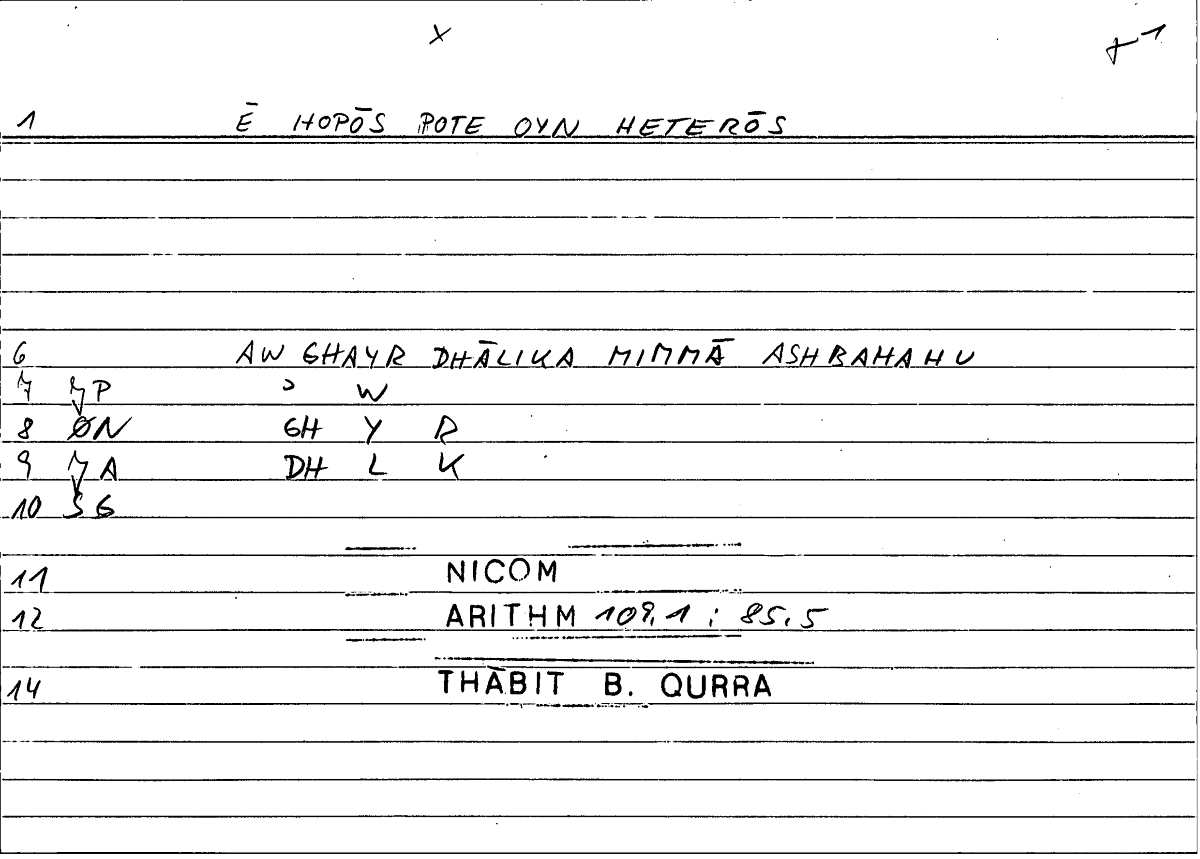 x
1 Ē HOPŌS POTE OYN HETERŌS
6 AW GHAYR DHĀLIKA MIMMĀ ASHBAHAHU
7 P ɔ W
8 ØN GH Y R
9 A DH L K
10 SG
11 NICOM
12 ARITHM 109,1 ; 85,5
14 THĀBIT B. QURRA